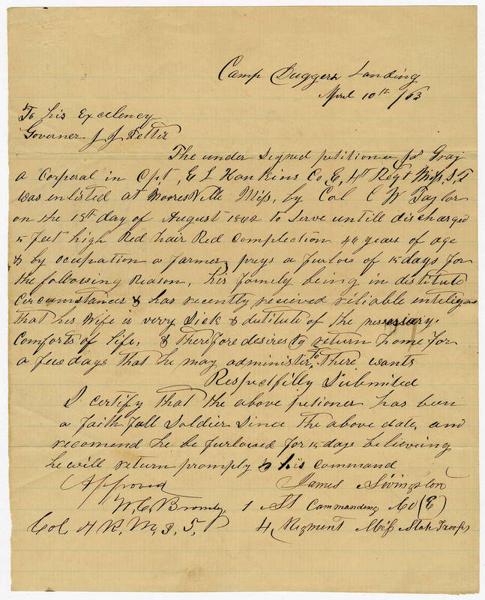 Camp Duggers Landing
Aprl 10th /63
To his Exclency
Governer J J Pettir
The under Signed petitioner Gray
a Corporal in Cpt, E L Hankins Co, E, 4t Regt Miss, S, T
was enlisted at Mooresville Miss, by Col C W Taylor
on the 18th day of August 1862 to serve untill discharged
feet high Red hair Red Complection 44 years of age
& by ocupation a farmer prays a furlow of 15 days for
the following Reason, his family being in destitute
Circumstances & has recently received reliable inteligas
that his Wife is verry Sick & destitute of the nessessary
Comforts of Life, & Therefore desires to return home for
a few days that he may administer to There wants
Respectfilly Submited
I certify that the above petioner has been
a faith full Soldier Since the above date, and
recomend he be furlowed for 15 days believing
he will return promptly to his command
Approved James Livingston
W. C. Bromly 1 St Commanding Co (E)
Col 4 R, M, S, T, 4 Regiment Miss State Troops